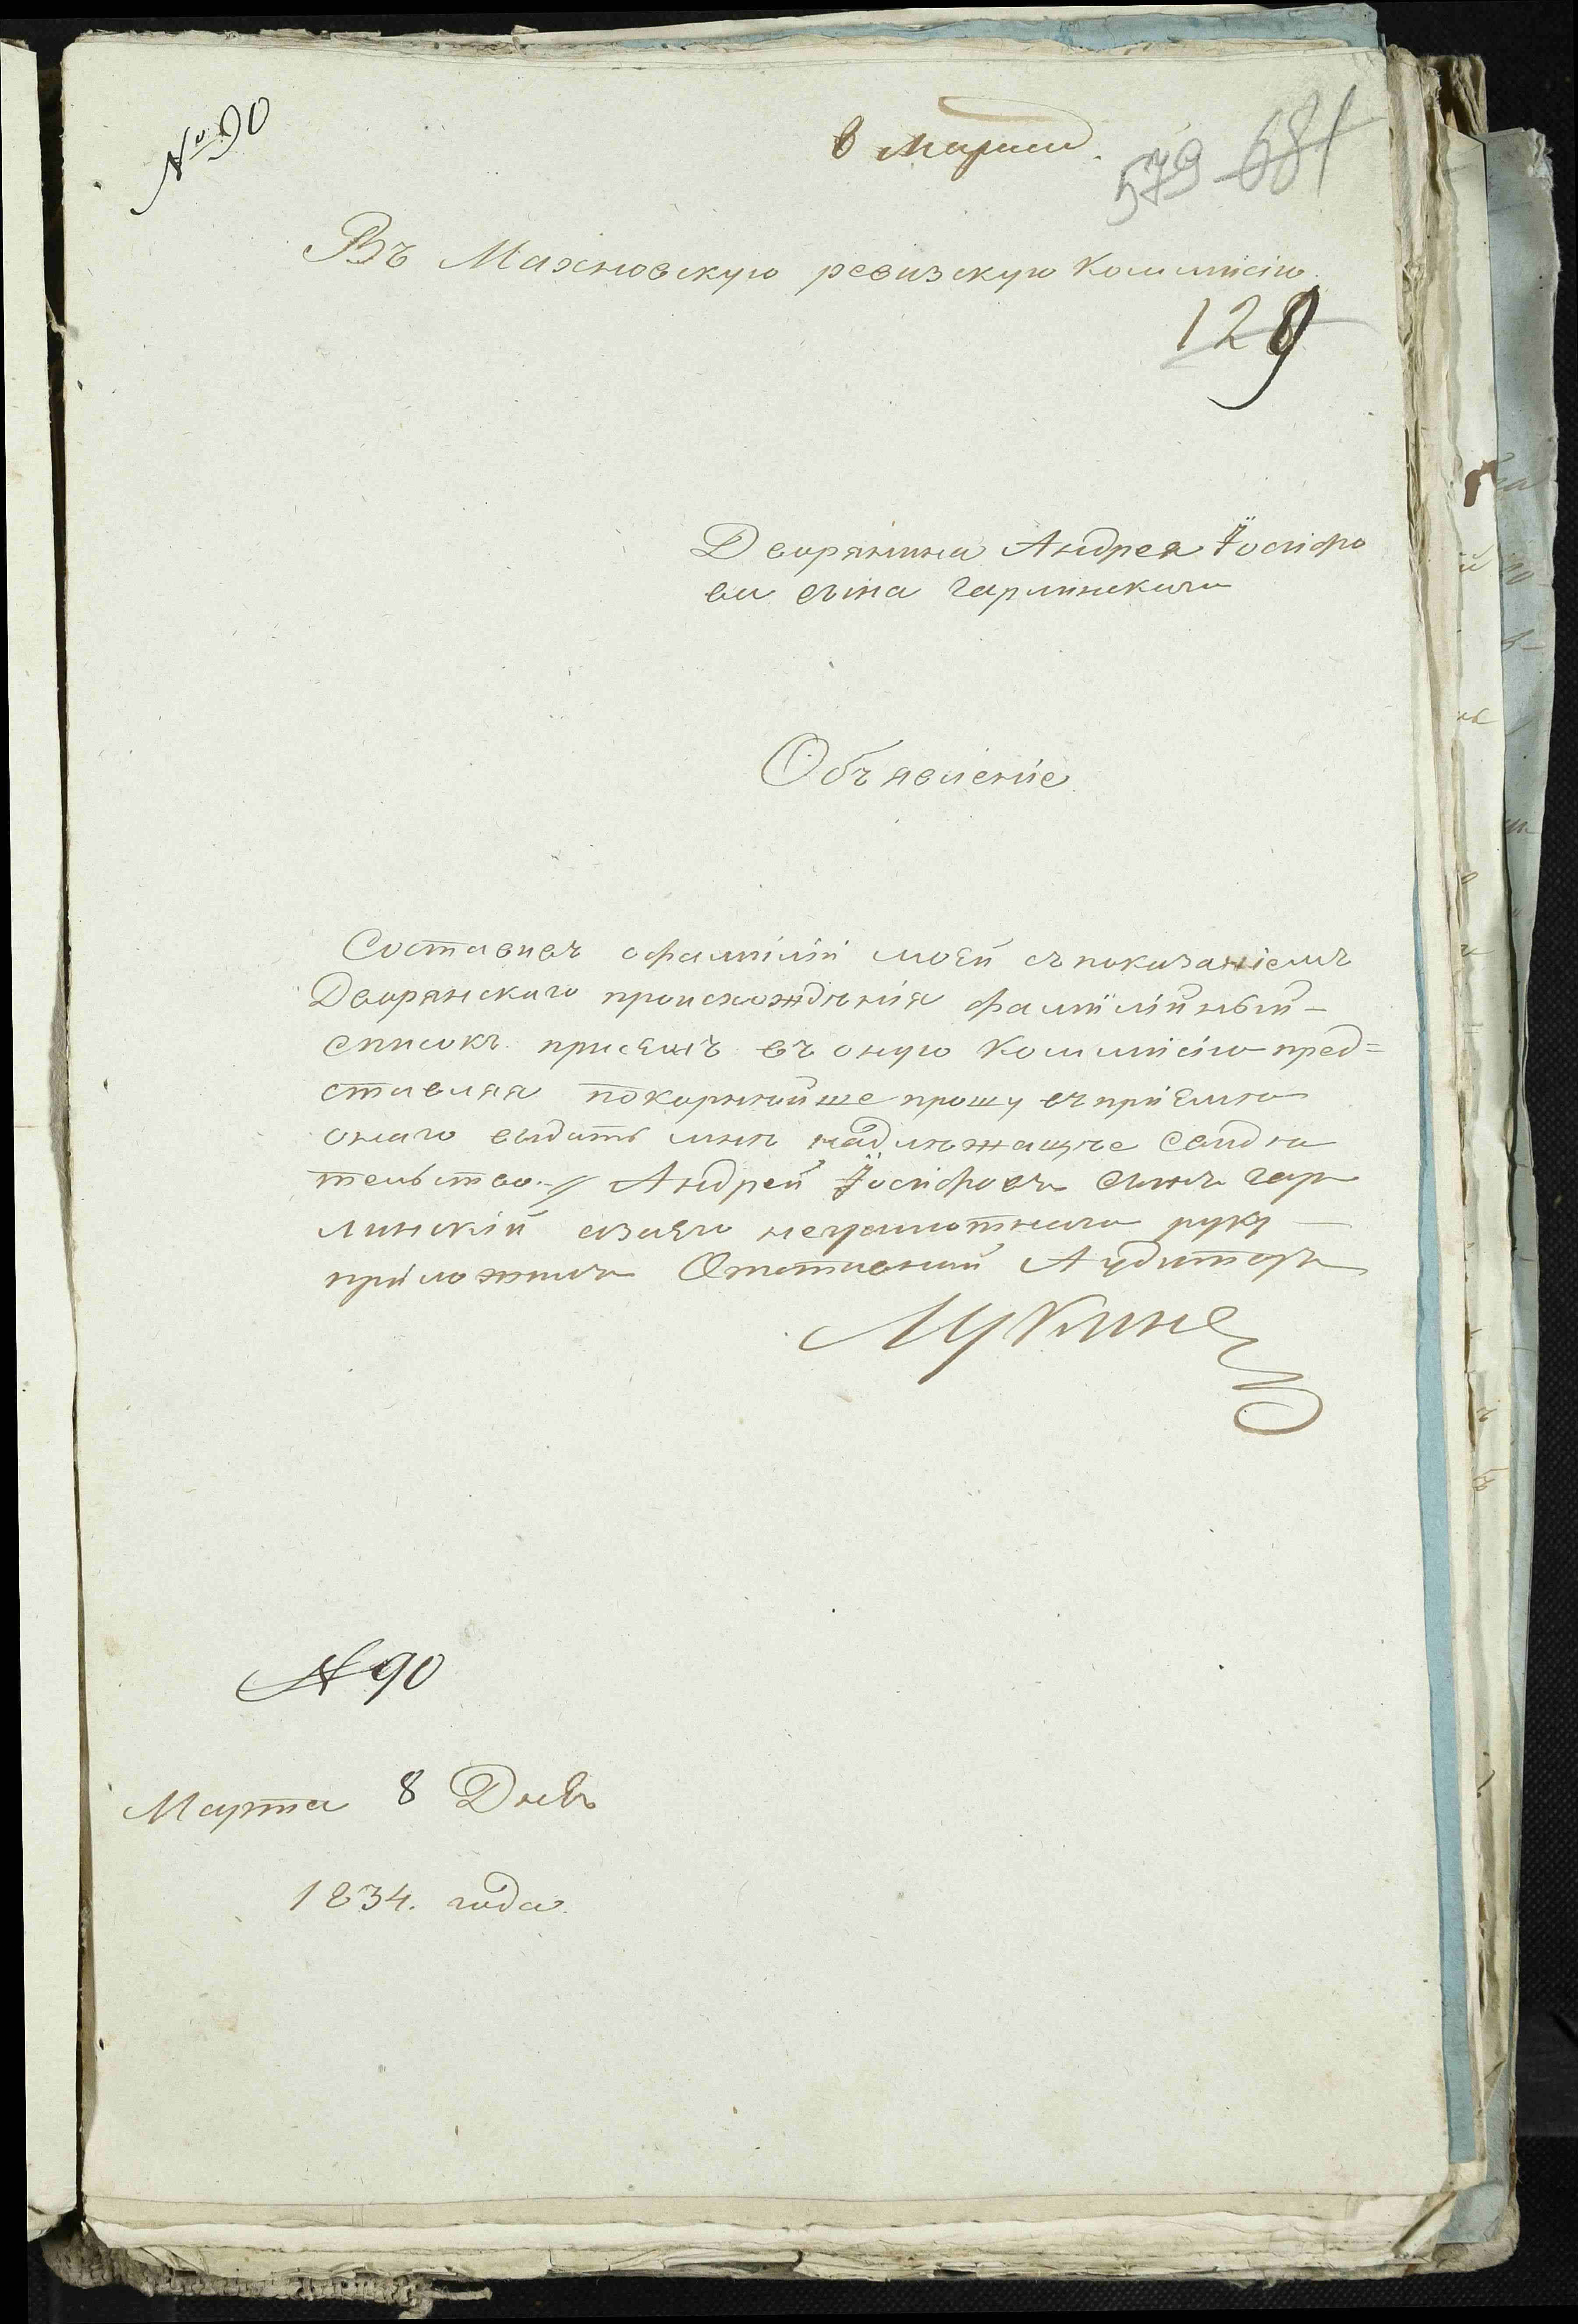 № 90
8 марта
579 681
Въ Махновскую ревизскую Коммисію
129
Дворянина Андрея Іосифо
ва сына Чарлинскаго
Объявленіе
Составивъ о фамиліи моей съ показаніемъ
Дворянскаго происхожденія фамилійный
списокъ присемъ въ оную Коммисію пред=
ставляя покорнейше прошу въ пріемѣ
онаго выдать мнѣ надлежащее свидѣ
тельство. Андрей Іосифовъ сынъ Чар
линскій а за его неграмотнаго руку
приложилъ Отставный Аудиторъ
№ 90
Марта 8 Дня
1834. года